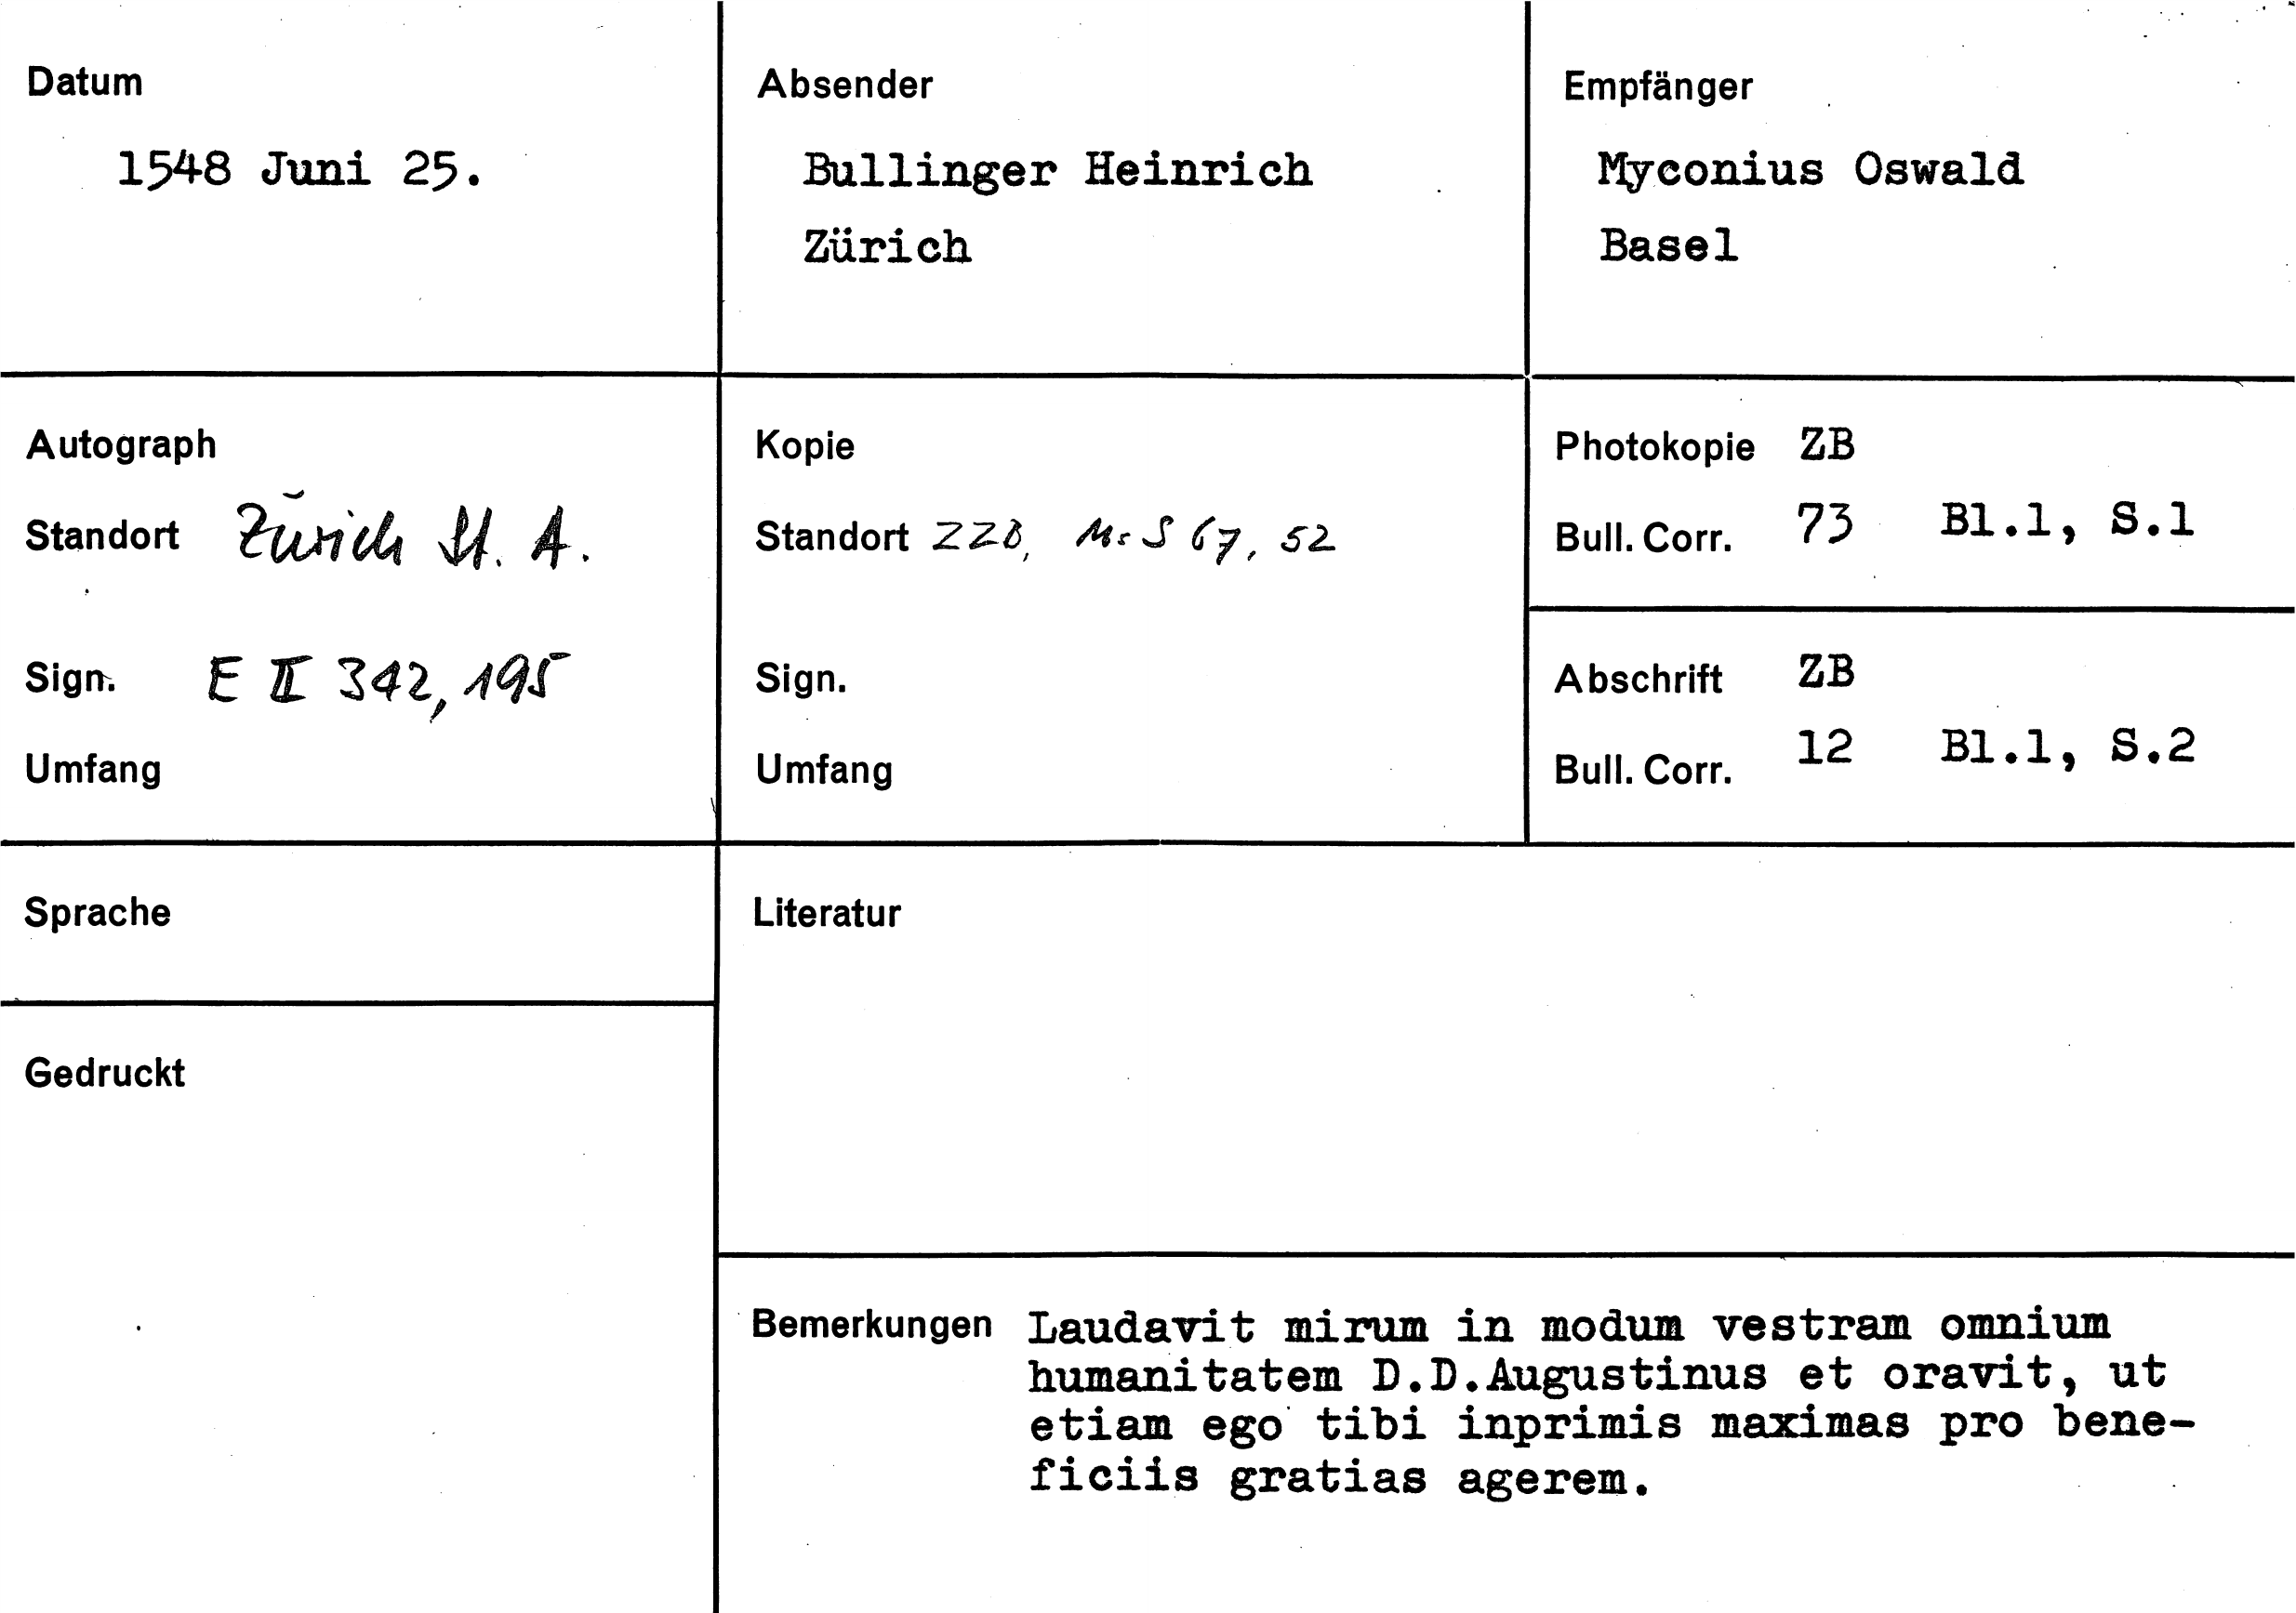 Datum
1548 Juni 25.
Absender
Bullinger Heinrich
Zürich
Empfänger
Myconius Oswald
Basel
Autograph
Standort Zürich St. A.
Sign. E II 342, 195
Umfang
Kopie
Standort ZZB, Ms S 67, 52
Sign.
Umfang
Photokopie ZB
Bull. Corr. 73 Bl.1, S.1
Abschrift ZB
Bull. Corr. 12 Bl.1, S.2
Sprache
Gedruckt
Literatur
Bemerkungen Laudavit mirum in modum vestram omnium
humanitatem D.D.Augustinus et oravit, ut
etiam ego tibi inprimis maximas pro bene-
ficiis gratias agerem.